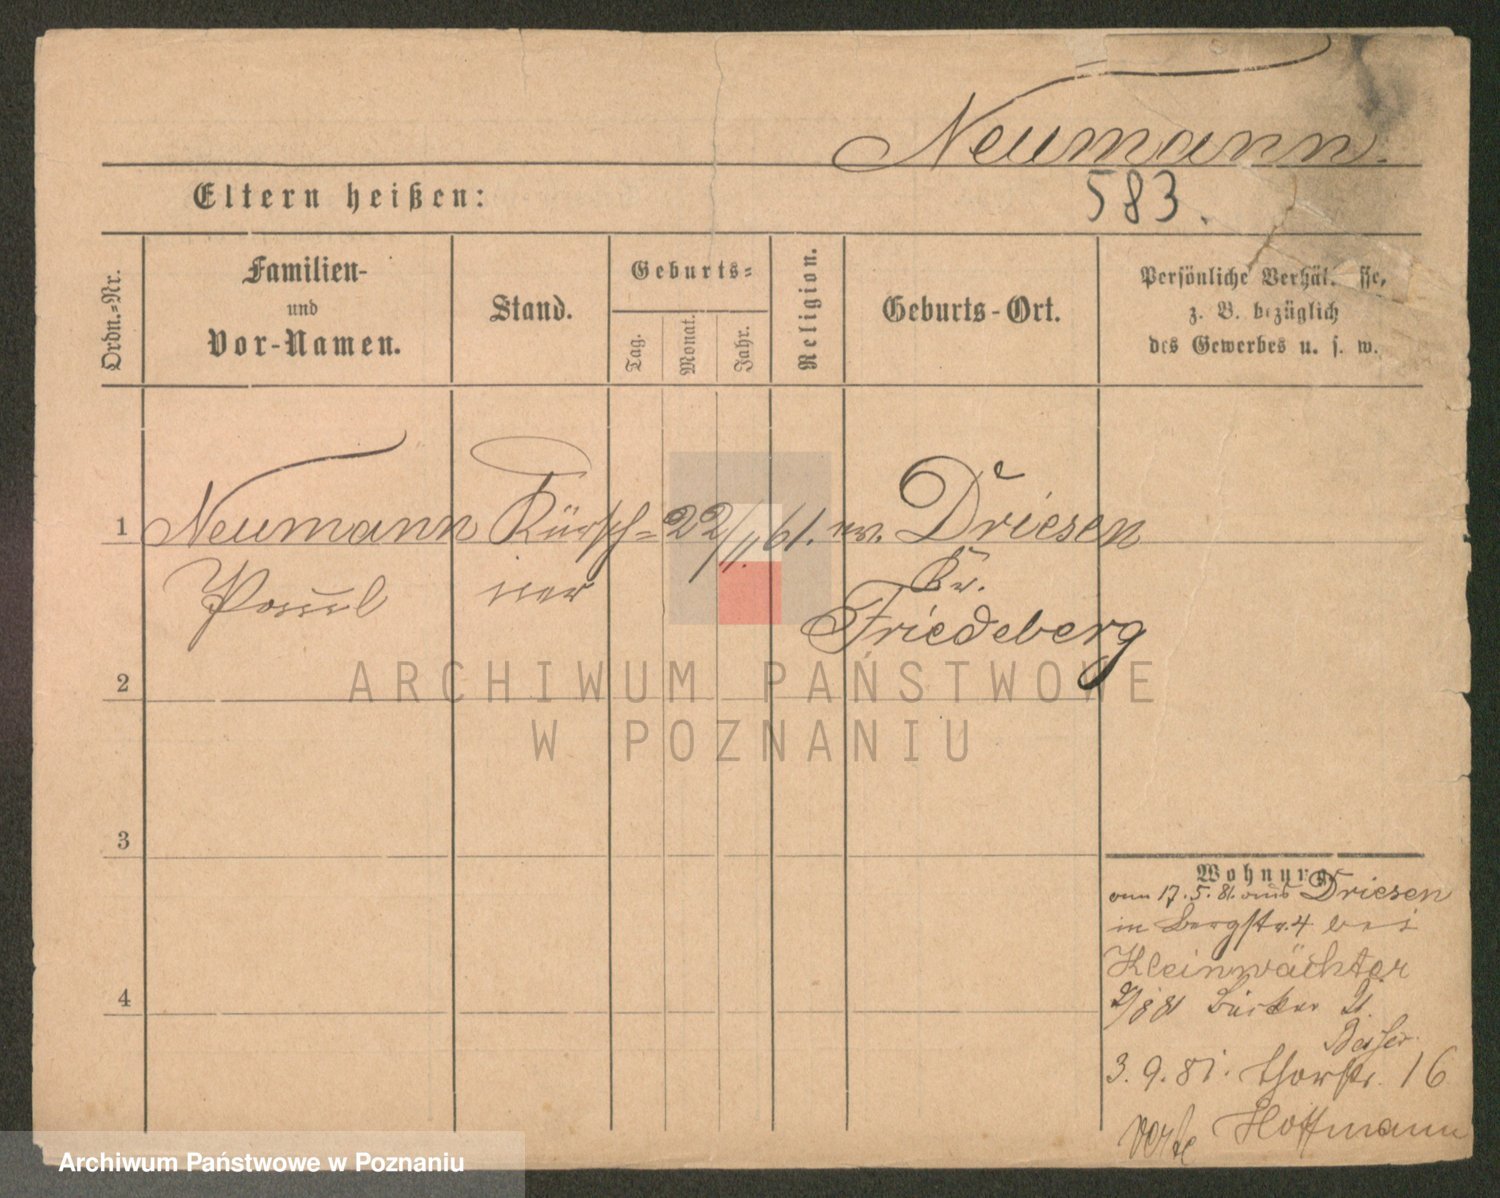 Neumann.
Eltern heißen:
583.
Ordn.-Nr.
Familien-
und
Vor-Namen.
Stand.
Geburts-
Tag.
Monat.
Jahr.
Religion.
Geburts-Ort.
Persönliche Verhäl sse,
z. B. bezüglich
des Gewerbes u. s. w.
1
Neumann Kürsch- 22/II. 61. ev. Driesen
Paul ner Kr.
Friedeberg
ARCHIWUM PAŃSTWOWE
2
W POZNANIU
3
Wohnung
17.5.81. aus Driesen
in Bergstr. 4 bei
Kleinwächter
4
3.9.81. Thorstr. 16
Hoffmann
Archiwum Państwowe w Poznaniu